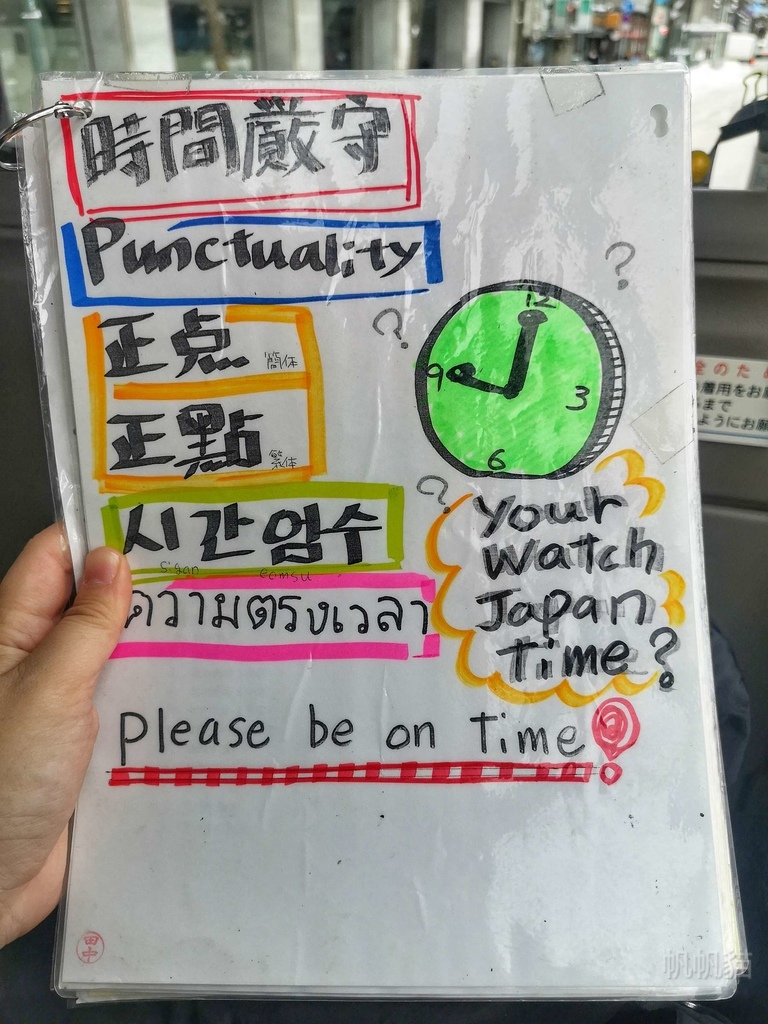 時間厳守
Punctuality
正点 簡体
正點 繁体
시간 엄수
sigan eomsu
ความตรงเวลา
12
9
3
6
?
?
?
Your
Watch
Japan
Time?
Please be on Time!
田中
全のため
着用をお願
まで
ようにお願
帆帆貓